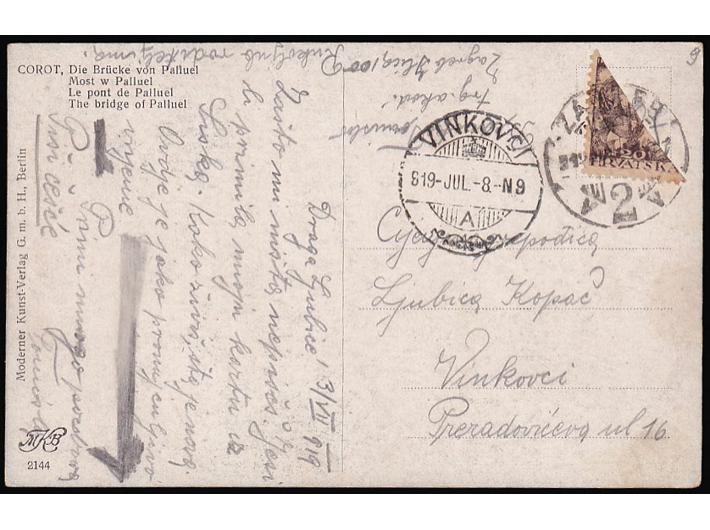 COROT, Die Brücke von Palluel
Most w Palluel
Le pont de Palluel
The bridge of Palluel
Moderner Kunst-Verlag G. m. b. H., Berlin
MKB
2144
Draga Ljubice! 3/VII 919
Zašto mi ništa nepišeš. Jesi
li primila moju kartu iz
Siska. Kako živiš, šta je nova.
Ovdje je jako promjenljivo
vrijeme
Primi mnogo pozdrava
Piši češće
Tomislav
trg. akad.
Zagreb Ilica 100
VINKOVCI
919-JUL.-8.-N9
A
ZAGREB
2
HRZATSK
Cijenj. gospodjica
Ljubica Kopač
Vinkovci
Preradovićeva ul 16